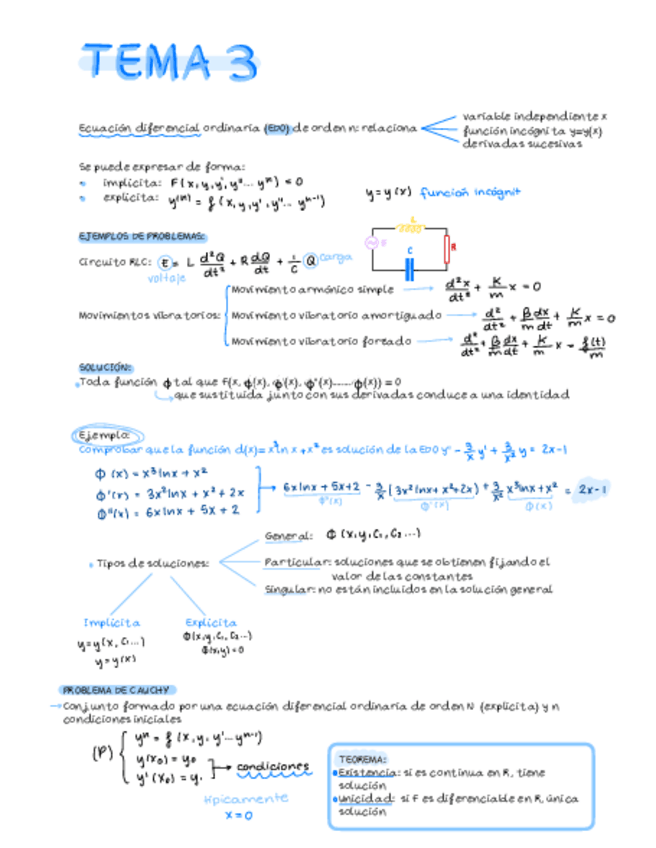 TEMA 3
Ecuación diferencial ordinaria (EDO) de orden n: relaciona
variable independiente x
función incógnita y=y(x)
derivadas sucesivas
Se puede expresar de forma:
implícita: F(x, y, y', y''... yⁿ) = 0
explícita: y⁽ⁿ⁾ = f(x, y, y', y''... yⁿ⁻¹)
y = y(x) función incógnit
EJEMPLOS DE PROBLEMAS:
L
E
R
C
Circuito RLC: E = L d²Q/dt² + R dQ/dt + 1/C Q carga
voltaje
Movimientos vibratorios:
Movimiento armónico simple → d²x/dt² + K/m x = 0
Movimiento vibratorio amortiguado → d²/dt² + β/m dx/dt + K/m x = 0
Movimiento vibratorio foreado → d²/dt² + β/m dx/dt + K/m x = f(t)/m
SOLUCIÓN:
Toda función ϕ tal que F(x, ϕ(x), ϕ'(x), ϕ''(x)......ϕ(x)) = 0
que sustituida junto con sus derivadas conduce a una identidad
Ejemplo:
Comprobar que la función d(x) = x³ln x + x² es solución de la EDO y'' - 3/x y' + 3/x² y = 2x-1
Φ(x) = x³lnx + x²
Φ'(x) = 3x²lnx + x² + 2x
Φ''(x) = 6xlnx + 5x + 2
6xlnx + 5x+2 - 3/x (3x²lnx + x²+2x) + 3/x² x³lnx + x² = 2x-1
Φ''(x) Φ'(x) Φ(x)
Tipos de soluciones:
General: Φ(x, y, C₁, C₂...)
Particular: soluciones que se obtienen fijando el
valor de las constantes
Singular: no están incluidos en la solución general
Implícita
y = y(x, C₁...)
y = y(x)
Explícita
Φ(x, y, C₁, C₂...)
Φ(x,y) = 0
PROBLEMA DE CAUCHY
→ Conjunto formado por una ecuación diferencial ordinaria de orden N (explícita) y n
condiciones iniciales
(P)
yⁿ = f(x, y, y'... yⁿ⁻¹)
y(x₀) = y₀
y'(x₀) = y₁
→ condiciones
típicamente
x = 0
TEOREMA:
Existencia: si es continua en R, tiene
solución
Unicidad: si F es diferenciable en R, única
solución